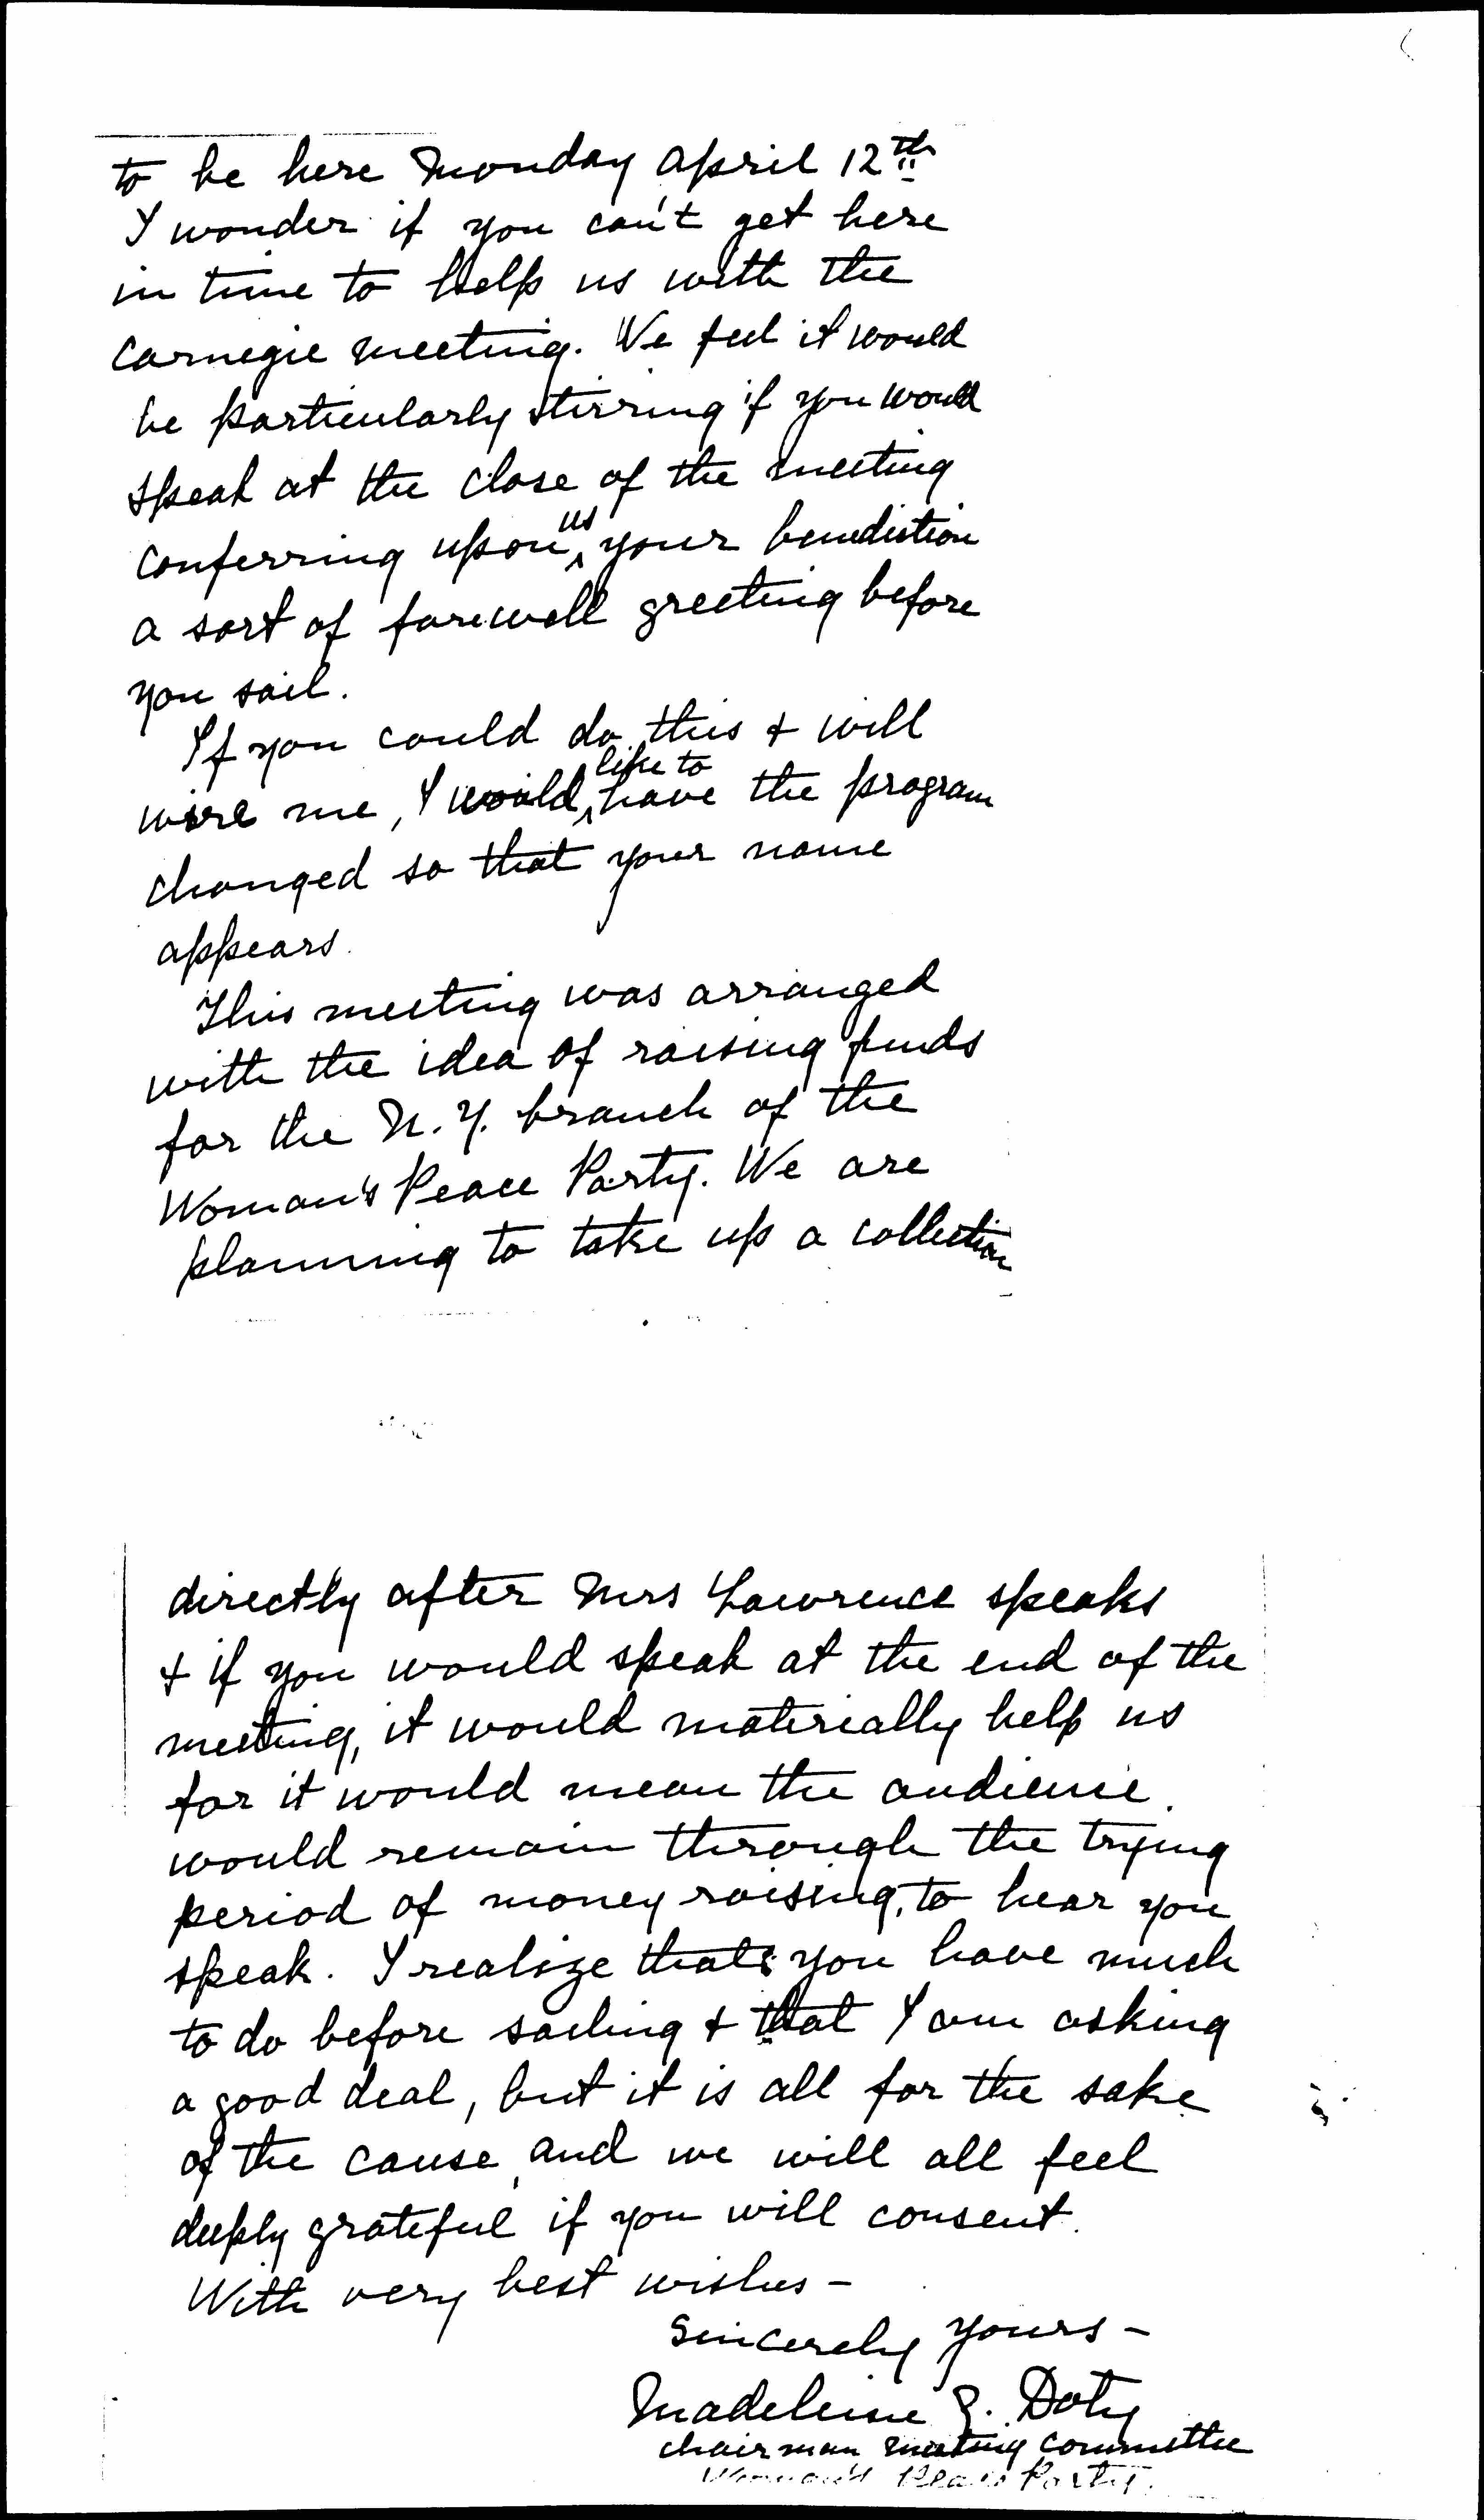 to be here Monday April 12th
I wonder if you can't get here
in time to help us with the
Carnegie meeting. We feel it would
be particularly stirring if you would
speak at the close of the meeting
conferring upon us your benediction
a sort of farewell greeting before
you sail.
If you could do this & will
wire me, I would like to have the program
changed so that your name
appears.
This meeting was arranged
with the idea of raising funds
for the N.Y. branch of the
Woman's Peace Party. We are
planning to take up a collection
directly after Mrs Lawrence speaks
& if you would speak at the end of the
meeting, it would materially help us
for it would mean the audience
would remain through the trying
period of money raising, to hear you
speak. I realize that you have much
to do before sailing & that I am asking
a good deal, but it is all for the sake
of the cause, and we will all feel
deeply grateful if you will consent.
With very best wishes -
Sincerely yours -
Madeleine Z. Doty
Chairman meeting committee
Woman's Peace Party.